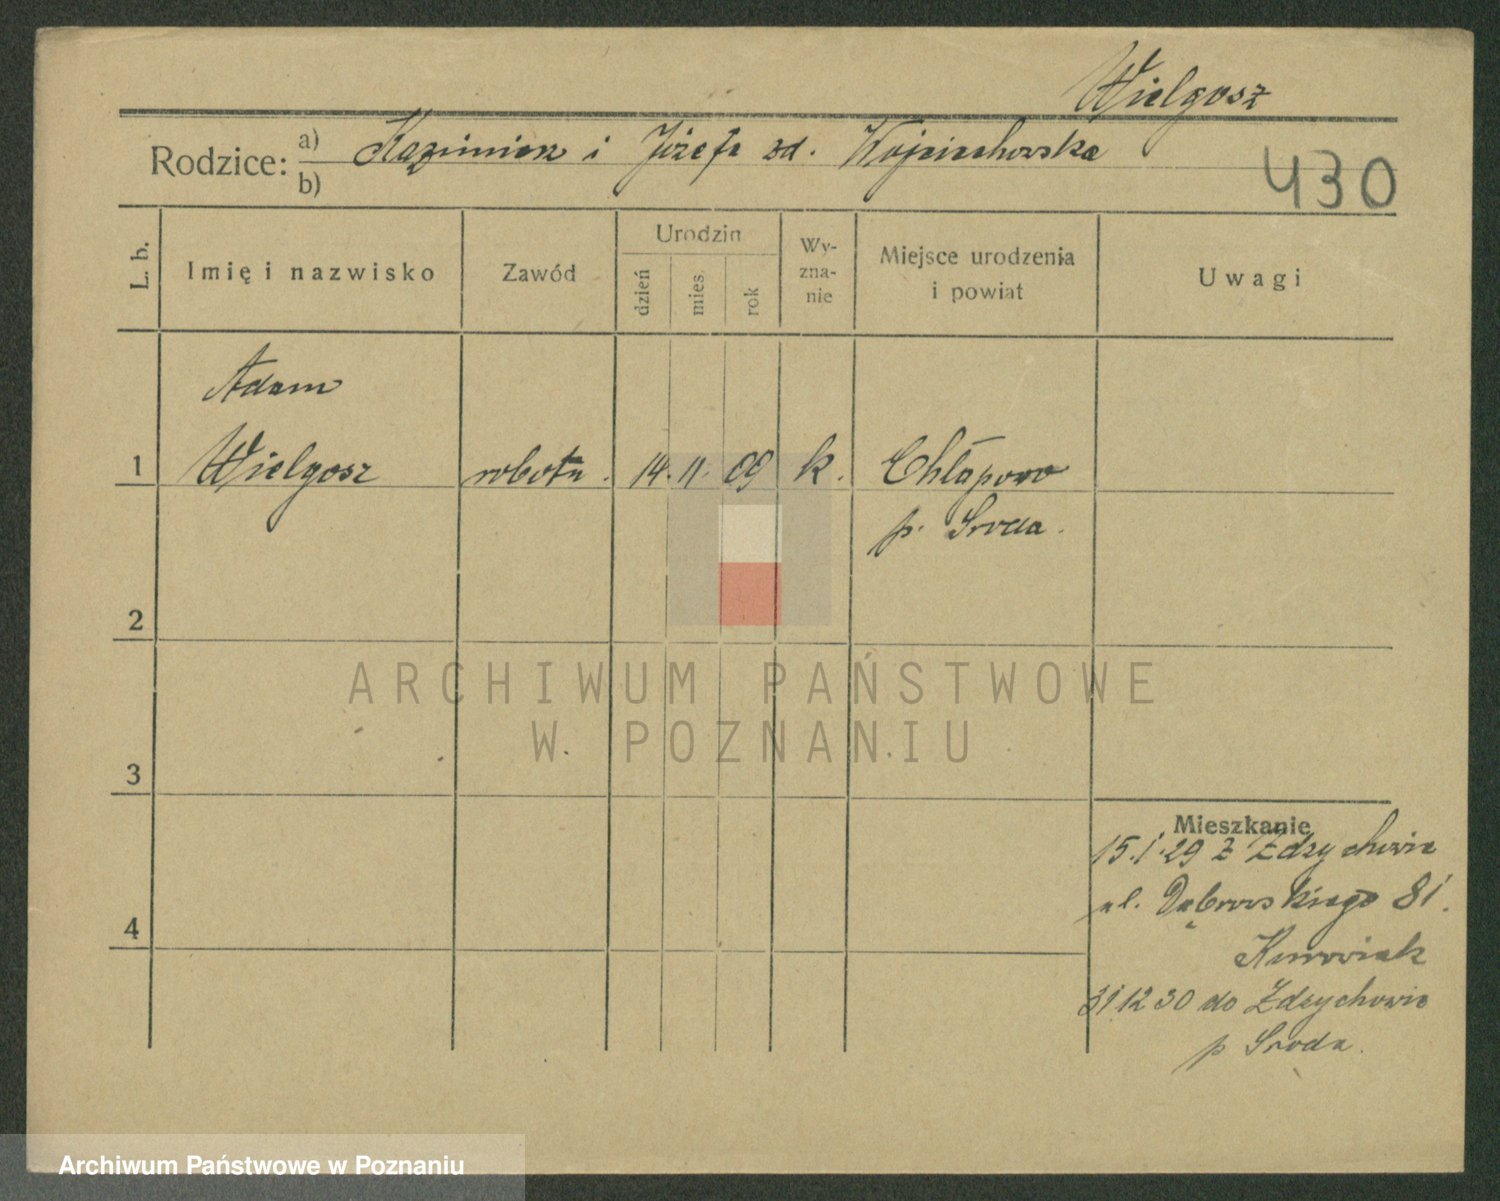 Wielgosz
Rodzice: a) Kazimierz i Józefa zd. Wojciechowska
b)
430
L. b. Imię i nazwisko Zawód Urodzin dzień mies. rok Wy-zna-nie Miejsce urodzenia i powiat Uwagi
Adam
1 Wielgosz robotn. 14. 11. 09 k. Chłapowo
p. Sroda.
2
ARCHIWUM PAŃSTWOWE
W POZNANIU
3
Mieszkanie
15.1.29 z Zdzychowic
ul. Dąbrowskiego 81.
4
31.12 30 do Zdzychowic
p Sroda.
Archiwum Państwowe w Poznaniu